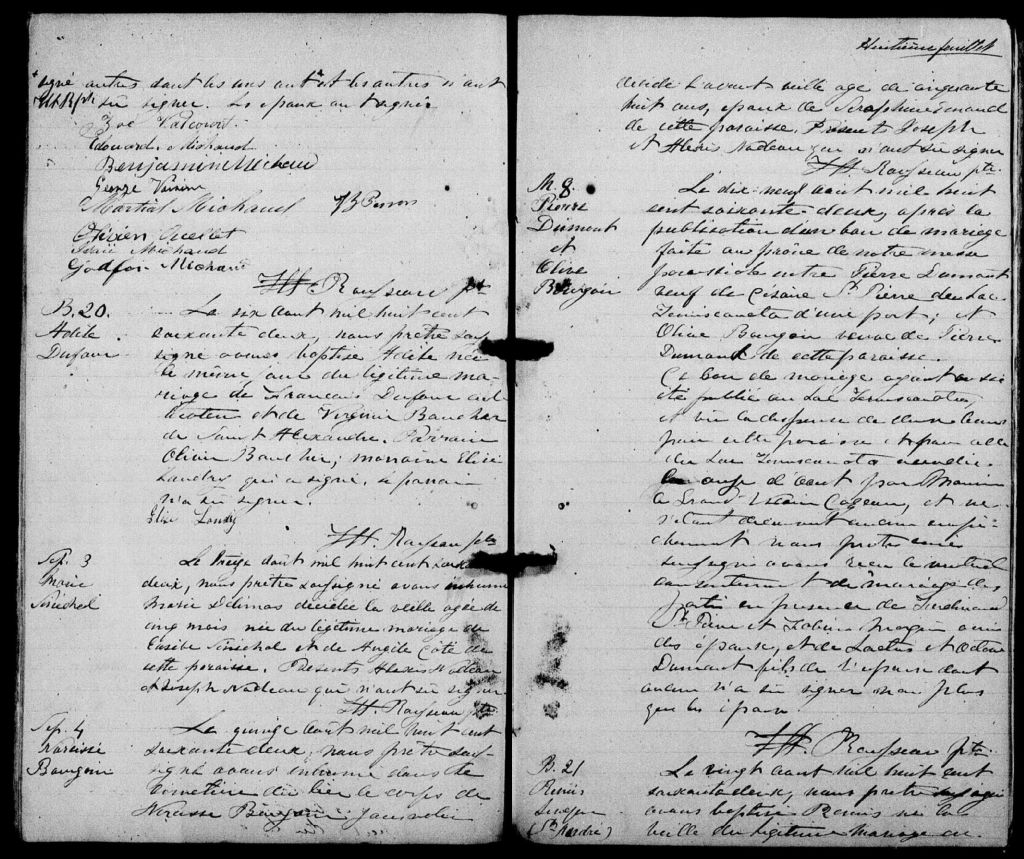 signé autres dont les uns ont et les autres n'ont
su signer. Les epoux ont signé.
Zoé Valcourt
Edouard Michaud
Benjamin Michaud
George Voisine
Martial Michaud JB Peron
Olivien Ouellet
Michaud
Godfroi Michaud
Rousseau ptre
B. 20.
Adèle
Dufour
Le six aout mil huit cent
soixante deux, nous prêtre sous-
signé avons baptisé Adèle née
le même jour du légitime ma-
riage de François Dufour cul-
tivateur et de Virginie Boucher
de Saint Alexandre. Parrain
Olivier Boucher; marraine Elise
Landry qui a signé, le parrain
n'a su signer.
Elise Landry
Rousseau ptre
Sép. 3
Marie
Sénéchal
Le treize août mil huit cent soixante
deux, nous prêtre soussigné avons inhumé
Marie décédée la veille agée de
cinq mois née du légitime mariage de
Eusèbe Sénéchal et de Angèle Côté de
cette paroisse. Présents Henri Nadeau
et Joseph Nadeau qui n'ont su signer
Rousseau ptre
Sép. 4
Narcisse
Bourgoin
Le quinze août mil huit cent
soixante deux, nous prêtre sous-
signé avons inhumé dans le
cimetière du lieu le corps de
Narcisse Bourgoin journalier
Huitième feuillet
décédé l'avant veille agé de cinquante
huit ans, epoux de Séraphine
de cette paroisse. Présents Joseph
et Henri Nadeau qui n'ont su signer
Rousseau ptre
M. 8.
Pierre
Dumont
et
Olive
Bourgoin
Le dix-neuf aout mil huit
cent soixante-deux, après la
publication d'un ban de mariage
faite au prône de notre messe
paroissiale entre Pierre Dumont
veuf de Césaire St Pierre du Lac
Temiscouata d'une part; et
Olive Bourgoin veuve de Pierre
Dumont de cette paroisse.
Ce ban de mariage ayant aussi
été publié au Lac Temiscouata,
et vu la dispense de deux bans
pour cette paroisse et pour celle
du Lac Temiscouata accordée
le onze d'août par Monsieur
le Grand Vicaire Cazeau, et ne
s'étant découvert aucun empê-
chement nous prêtre curé
soussigné avons reçu le mutuel
consentement de mariage des
parties en présence de Ferdinand
St Pierre et amis
des époux, et de et Octave
Dumont fils de l'epouse dont
aucun n'a su signer non plus
que les époux.
Rousseau ptre
B. 21
Rémis
Levêque
(St André)
Le vingt aout mil huit cent
soixante deux, nous prêtre soussigné
avons baptisé Rémis né la
veille du légitime mariage de